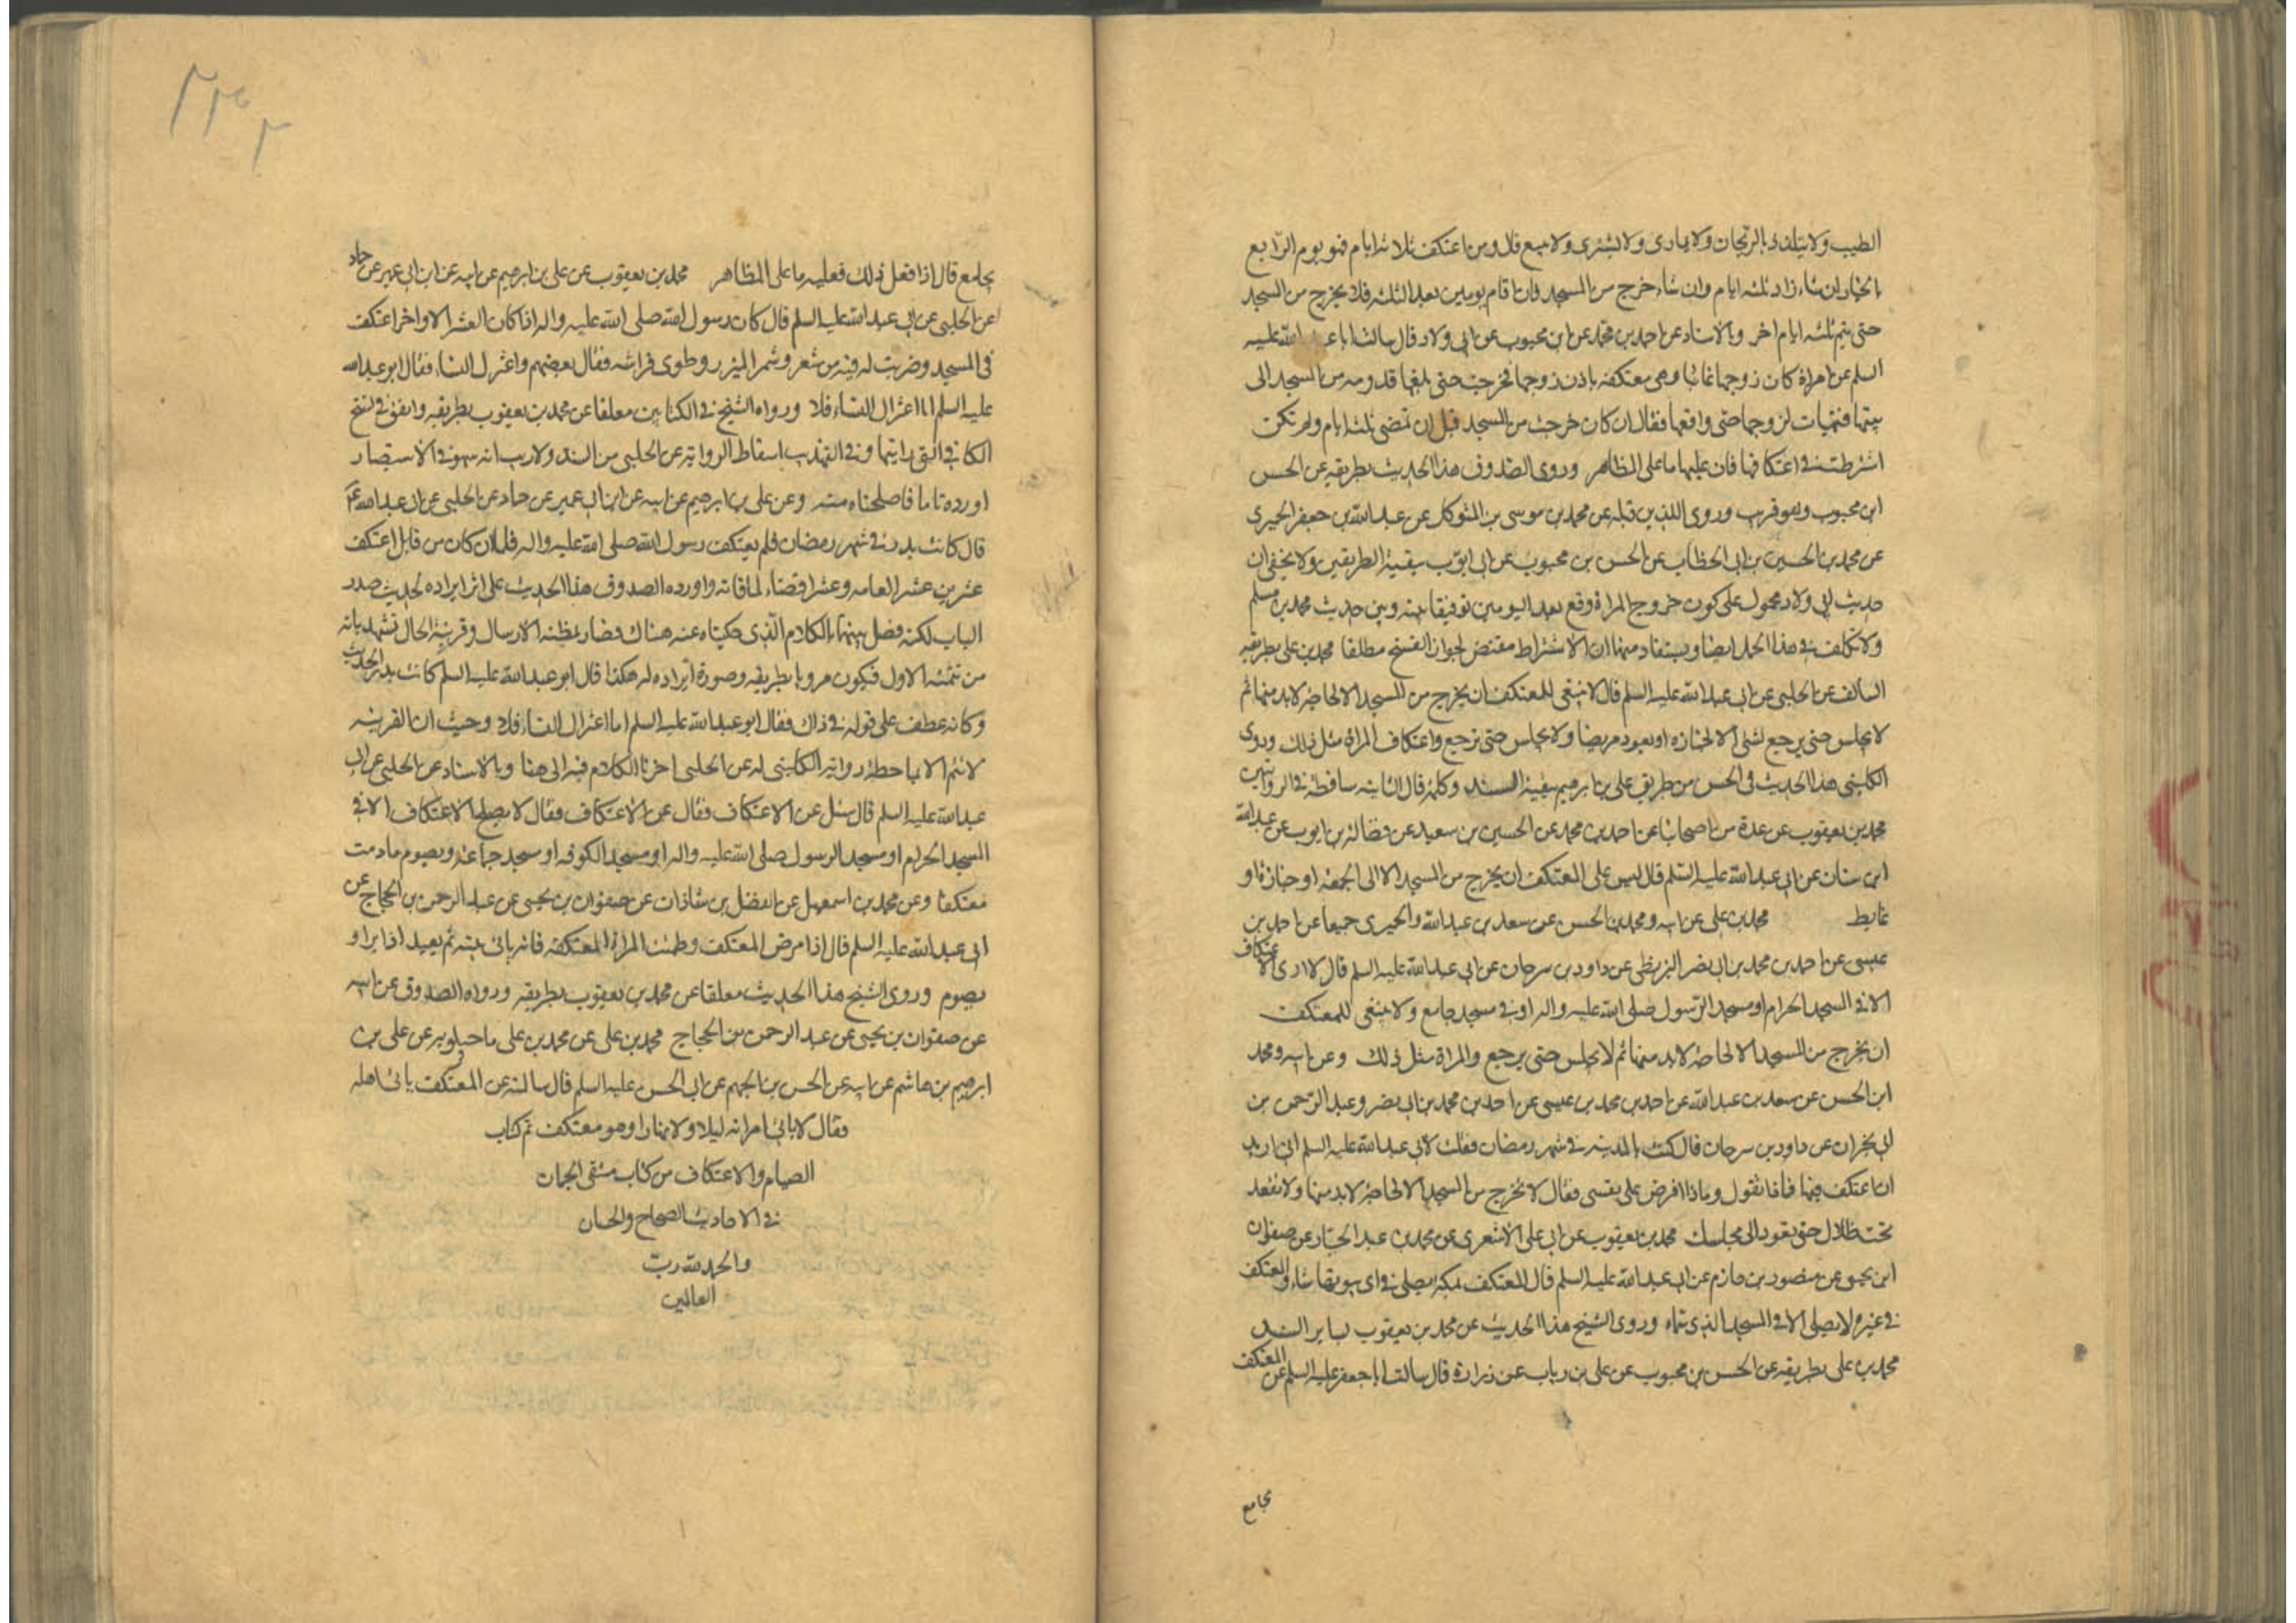 الطيب ولا يتلذذ بالريحان ولا يمارى ولا يشترى ولا يبيع قال ومن اعتكف ثلاثة ايام فهو يوم الرابع
بالخيار ان شاء زاد ثلثة ايام وان شاء خرج من المسجد فان اقام يومين بعد الثلثة فلا يخرج من المسجد
حتى يتم ثلثة ايام اخر وبالاسناد عن احمد بن محمد عن ابن محبوب عن ابى ولاد قال سالت ابا عبد الله عليه
السلم عن امراة كان زوجها غائبا وهى معتكفة باذن زوجها فخرجت حتى بلغها قدومه من المسجد الى
بيتها فتهيات لزوجها حتى واقعها فقال ان كان خرجت من المسجد قبل ان تمضى ثلثة ايام ولم تكن
اشترطت فى اعتكافها فان عليها ما على المظاهر وروى الصدوق هذا الحديث بطريقه عن الحسن
ابن محبوب وهو قريب وروى اللذين قبله عن محمد بن موسى بن المتوكل عن عبد الله بن جعفر الحميرى
عن محمد بن الحسين بن ابى الخطاب عن الحسن بن محبوب عن ابى ايوب ببقية الطريقين ولا يخفى ان
حديث ابى ولاد محمول على كون خروج المراة وقع بعد اليومين توفيقا بينه وبين حديث محمد بن مسلم
ولا تكلف فى هذا الحمل ايضا ويستفاد منهما ان الاشتراط مقتض لجواز الفسخ مطلقا محمد بن على بطريقه
السالف عن الحلبى عن ابى عبد الله عليه السلم قال لا ينبغى للمعتكف ان يخرج من المسجد الا لحاجة لابد منها ثم
لا يجلس حتى يرجع لشئ الا لجنازة او يعود مريضا ولا يجلس حتى يرجع واعتكاف المراة مثل ذلك وروى
الكلينى هذا الحديث فى الحسن من طريق على بن ابرهيم ببقية السند وكلمة قال الثانية ساقطة فى الروايتين
محمد بن يعقوب عن عدة من اصحابنا عن احمد بن محمد عن الحسين بن سعيد عن فضالة بن ايوب عن عبد الله
ابن سنان عن ابى عبد الله عليه السلم قال ليس على المعتكف ان يخرج من المسجد الا الى الجمعة او جنازة او
غايط محمد بن على عن ابيه ومحمد بن الحسن عن سعد بن عبد الله والحميرى جميعا عن احمد بن
عيسى عن احمد بن محمد بن ابى نصر البزنطى عن داود بن سرحان عن ابى عبد الله عليه السلم قال لا ارى الاعتكاف
الا فى المسجد الحرام او مسجد الرسول صلى الله عليه واله او فى مسجد جامع ولا ينبغى للمعتكف
ان يخرج من المسجد الا لحاجة لابد منها ثم لا يجلس حتى يرجع والمراة مثل ذلك وعن ابيه ومحمد
ابن الحسن عن سعد بن عبد الله عن احمد بن محمد بن عيسى عن احمد بن محمد بن ابى نصر وعبد الرحمن بن
ابى نجران عن داود بن سرحان قال كنت بالمدينة فى شهر رمضان فقلت لابى عبد الله عليه السلم انى اريد
ان اعتكف فيها فماذا تقول وماذا افرض على نفسى فقال لا تخرج من المسجد الا لحاجة لابد منها ولا تقعد
تحت ظلال حتى تعود الى مجلسك محمد بن يعقوب عن ابى على الاشعرى عن محمد بن عبد الجبار عن صفوان
ابن يحيى عن منصور بن حازم عن ابى عبد الله عليه السلم قال المعتكف بمكة يصلى فى اى بيوتها شاء والمعتكف
فى غيره لا يصلى الا فى المسجد الذى سماه وروى الشيخ هذا الحديث عن محمد بن يعقوب بساير السند
محمد بن على بطريقه عن الحسن بن محبوب عن على بن رياب عن زرارة قال سالت ابا جعفر عليه السلم عن المعتكف
يجامع
يجامع قال اذا فعل ذلك فعليه ما على المظاهر محمد بن يعقوب عن على بن ابرهيم عن ابيه عن ابن ابى عمير عن حماد
عن الحلبى عن ابى عبد الله عليه السلم قال كان رسول الله صلى الله عليه واله اذا كان العشر الاواخر اعتكف
فى المسجد وضربت له قبة من شعر وشمر الميزر وطوى فراشه فقال بعضهم واعتزل النساء فقال ابو عبد الله
عليه السلم اما اعتزال النساء فلا ورواه الشيخ فى الكتابين معلقا عن محمد بن يعقوب بطريقه واتفق فى نسخ
الكافى التى رايتها وفى التهذيب اسقاط الرواية عن الحلبى من السند ولا ريب انه سهو فى الاستبصار
اورده تاما فاصلحناه منه وعن على بن ابرهيم عن ابيه عن ابن ابى عمير عن حماد عن الحلبى عن ابى عبد الله ع
قال كانت بدر فى شهر رمضان فلم يعتكف رسول الله صلى الله عليه واله فلما ان كان من قابل اعتكف
عشرين عشرا لعامه وعشرا قضاء لما فاته واورده الصدوق هذا الحديث على اثر ايراده لحديث صدر
الباب لكنه فصل بينهما بالكلام الذى حكيناه عنه هناك فصار بمظنة الارسال وقرينة الحال تشهد بانه
من تتمة الاول فيكون مرويا بطريقه وصورة ايراده له هكذا قال ابو عبد الله عليه السلم كانت بدر الحديث
وكانه عطف على قوله فى ذاك فقال ابو عبد الله عليه السلم اما اعتزال النساء فلا وحيث ان القرينة
لا تتم الا بملاحظة رواية الكلينى له عن الحلبى اخرنا الكلام فيه الى هنا وبالاسناد عن الحلبى عن ابى
عبد الله عليه السلم قال سئل عن الاعتكاف فقال عن الاعتكاف فقال لا يصلح الاعتكاف الا فى
المسجد الحرام او مسجد الرسول صلى الله عليه واله او مسجد الكوفة او مسجد جماعة ويصوم مادمت
معتكفا وعن محمد بن اسمعيل عن الفضل بن شاذان عن صفوان بن يحيى عن عبد الرحمن بن الحجاج عن
ابى عبد الله عليه السلم قال اذا مرض المعتكف وطمثت المراة المعتكفة فانه ياتى بيته ثم يعيد اذا برا و
يصوم وروى الشيخ هذا الحديث معلقا عن محمد بن يعقوب بطريقه ورواه الصدوق عن ابيه
عن صفوان بن يحيى عن عبد الرحمن بن الحجاج محمد بن على عن محمد بن على ماجيلويه عن على بن
ابرهيم بن هاشم عن ابيه عن الحسن بن الجهم عن ابى الحسن عليه السلم قال سالته عن المعتكف ياتى اهله
فقال لا ياتى امراته ليلا ولا نهارا وهو معتكف تم كتاب
الصيام والاعتكاف من كتاب منتقى الجمان
فى الاحاديث الصحاح والحسان
والحمد لله رب
العالمين